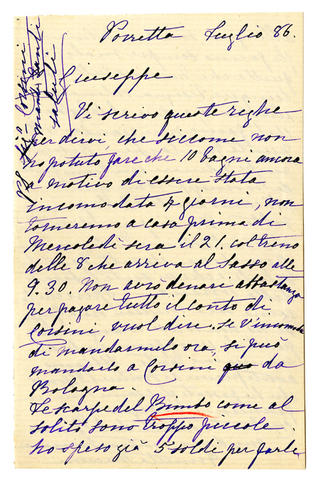 Porretta Luglio 86.
Giuseppe
Vi scrivo queste righe
per dirvi, che siccome non
ho potuto fare che 10 bagni ancora
a motivo di essere stata
incomodata 7 giorni, non
torneremo a casa prima di
Mercoledì sera il 21. col treno
delle 8 che arriva al Sasso alle
9.30. Non avrò denari abbastanza
per pagare tutto il conto di
Corsini vuol dire, se v'incomoda
di mandarmelo ora, si può
mandarlo a Corsini da
Bologna.
Le scarpe del Bimbo come al
solito sono troppo piccole
ho speso già 5 soldi per farle
Corsini
manda tanti
saluti